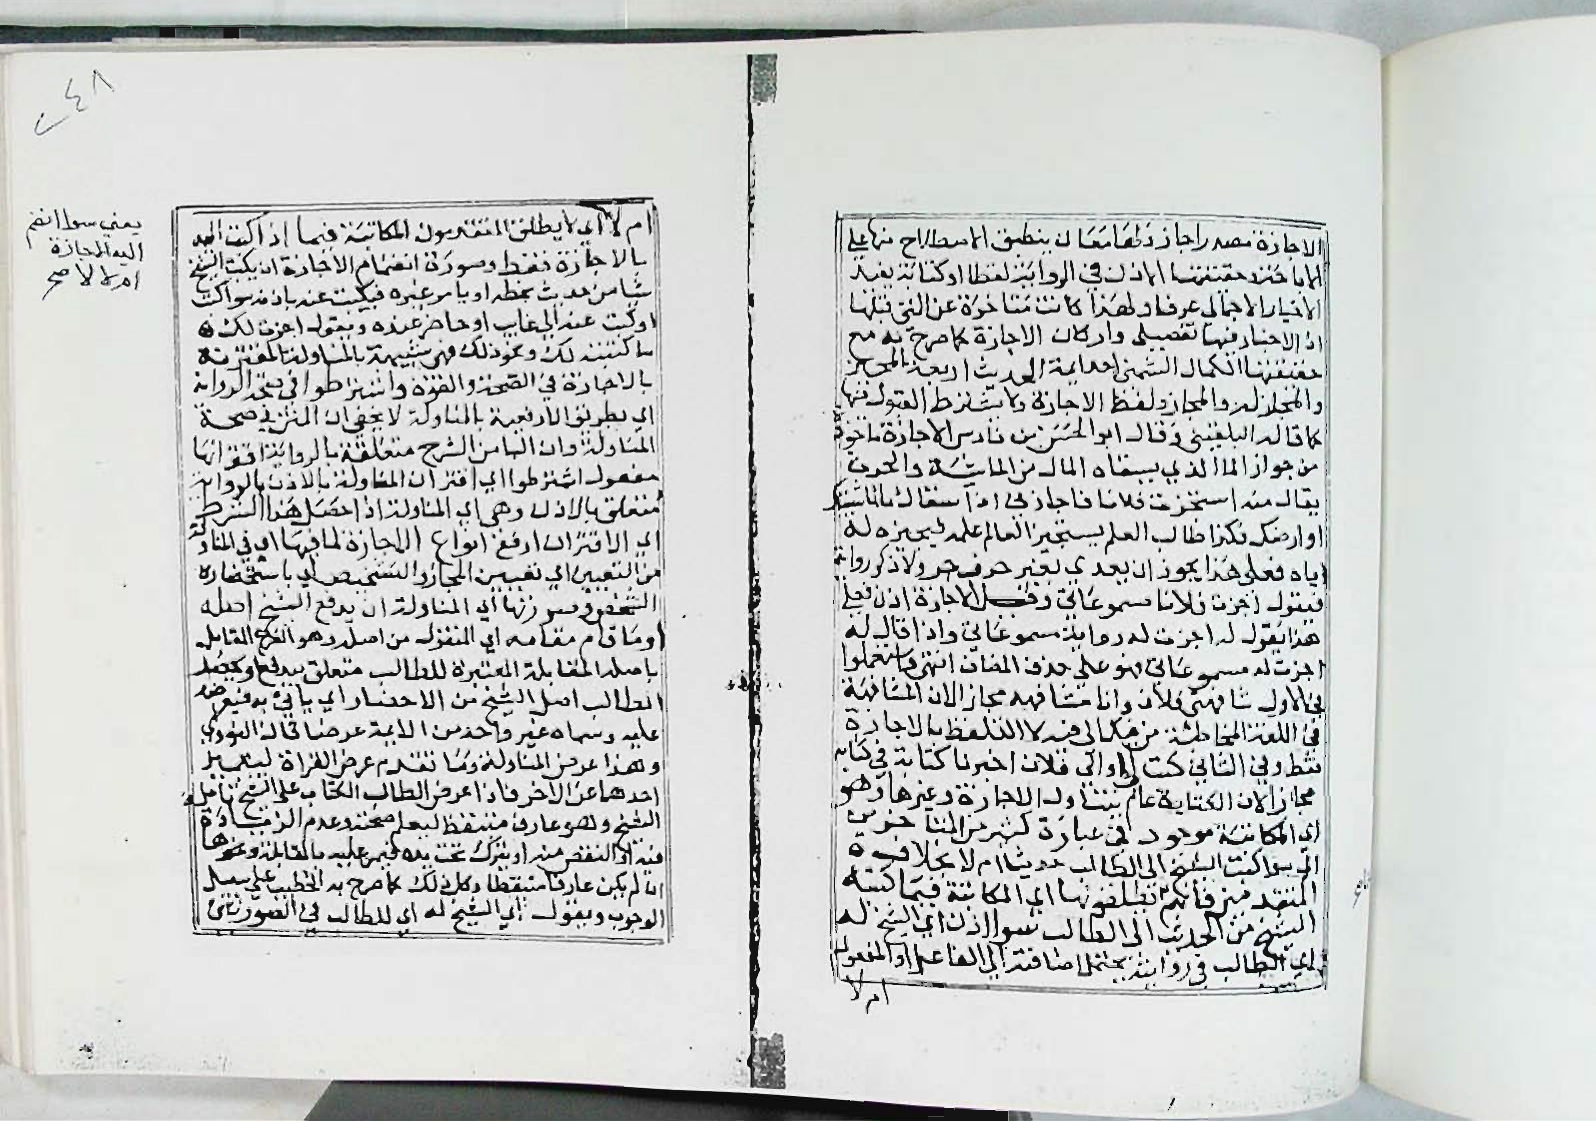 الاجازة مصدر اجاز ولها معان ينطبق الاصطلاح منها على
الاباحة حقيقتها الاذن في الرواية لفظا او كتابة يفيد
الاخبار الاجمالي عرفا ولهذا كانت متاخرة عن التي قبلها
اذ الاخبار فيها تفصيلي واركان الاجازة كما صرح به مع
حقيقتها الكمال الشمني احد ايمة الحديث اربعة المجيز
والمجاز له والمجاز ولفظ الاجازة ولا يشترط القبول فيها
كما قاله البلقيني وقال ابو الحسن بن فارس الاجازة ماخوذ
من جواز الماء الذي يسقاه المال من الماشية والحرث
يقال منه استجزت فلانا فاجازني اذا اسقاك ما لماشيتك
او ارضك فكذا طالب العلم يستجيز العالم علمه فيجيزه له
اياه فعلى هذا يجوز ان يعدي بغير حرف جر ولا ذكر رواية
فيقول اجزت فلانا مسموعاتي وقيل الاجازة اذن فعلى
هذا يقول له اجزت له رواية مسموعاتي واذا قال له
اجزت له مسموعاتي فهو على حذف المضاف انتهى فاستعملوا
في الاول شافهني فلان وانا مشافهه مجازا لان المشافهة
في اللغة المخاطبة من فيك الى فيه لا التلفظ بالاجازة
فقط وفي الثاني كتب الى فلان اخبرنا كتابة في كتابه
مجازا لان الكتابة عام يتناول الاجازة وغيرها وهو
اي المكاتبة موجود في عبارة كثير من المتاخرين
الي سوا كتب الشيخ الى الطالب حديثا ام لا بخلاف
المتقدمين فانهم يطلقونها اي المكاتبة فيما كتبه
الشيخ من الحديث الى الطالب سوا اذن اي الشيخ له
اي الطالب في روايته يحتمل اضافته الى الفاعل او المفعول
ام لا
٢٤٨
ام لا اي لا يطلق المتقدمون المكاتبة فيما اذا كتب اليه
بالاجازة فقط وصورة انضمام الاجازة ان يكتب الشيخ
شيا من حديث بخطه او يامر غيره فيكتب عنه باذنه سوا كتب
او كتب عنه الى غايب او حاضر عنده ويقول اجزت لك
ما كتبته لك ونحو ذلك فهي شبيهة بالمناولة المقترنة
بالاجازة في الصحة والقوة واشترطوا في صحة الرواية
اي بطريق الارفعية بالمناولة لا يخفى ان المتن في صحة
المناولة وان البا من الشرح متعلقة بالرواية اقترانها
مفعول اشترطوا اي اقتران المناولة بالاذن بالرواية
متعلق بالاذن وهي اي المناولة اذا حصل هذا الشرط
اي الاقتران ارفع انواع الاجازة لما فيها اي في المناولة
من التعيين اي تعيين المجاز والتشخيص اي باستحضاره
الشخص وصورتها اي المناولة ان يدفع الشيخ اصله
او ما قام مقامه اي المنقول من اصله وهو الفرع المقابل
باصله المقابلة المعتبرة للطالب متعلق بيدفع او يحضر
الطالب اصل الشيخ من الاحضار اي ياتي به فيعرضه
عليه وسماه غير واحد من الايمة عرضا قال النووي
وهذا عرض المناولة وما تقدم عرض القراة ليتميز
احدهما عن الاخر فاذا عرض الطالب الكتاب على الشيخ تامله
الشيخ وهو عارف متيقظ ليعلم صحته وعدم الزيادة
فيه او النقص منه او يتركه تحت يده ليمر عليه بالمقابلة ونحوها
ان لم يكن عارفا متيقظا وكل ذلك كما صرح به الخطيب على سبيل
الوجوب ويقول اي الشيخ له اي للطالب في الصورتين
يعني سوا انضم
اليه الاجازة
ام لا لا صح